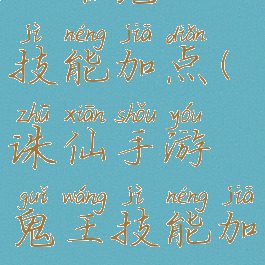 jì néng jiā diǎn
技能加点(
zhū xiān shǒu yóu
诛仙手游
guǐ wáng jì néng jiā
鬼王技能加